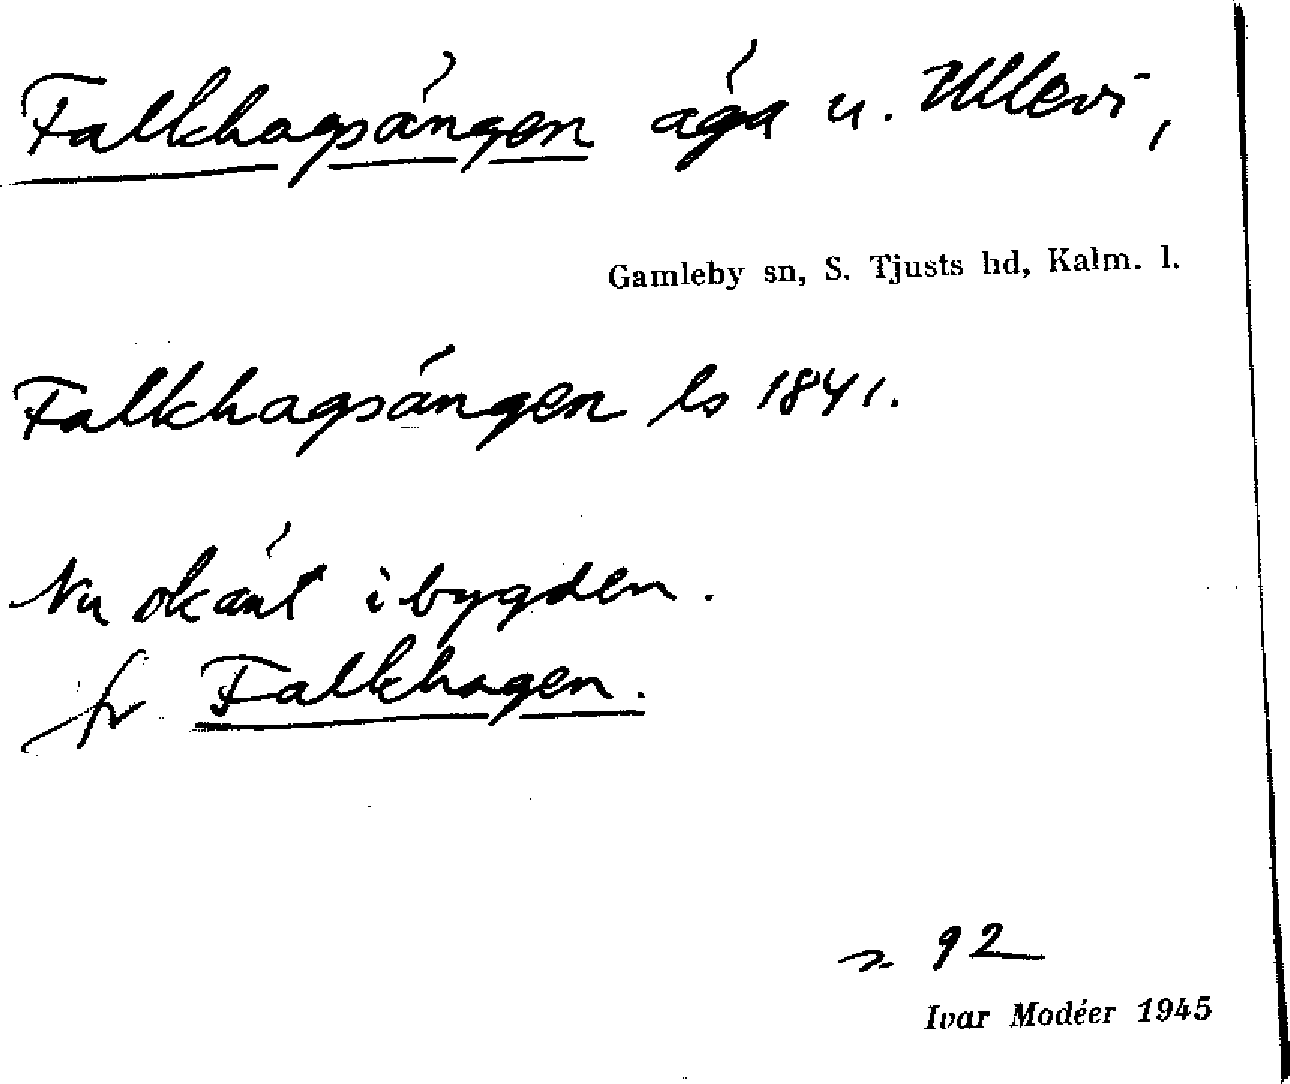 Falkhagsängen äga u. Ullevi,
Gamleby sn, S. Tjusts hd, Kalm. l.
Falkhagsängen ls 1841.
Nu okänt i bygden.
Falkhagen.
92
Ivar Modéer 1945